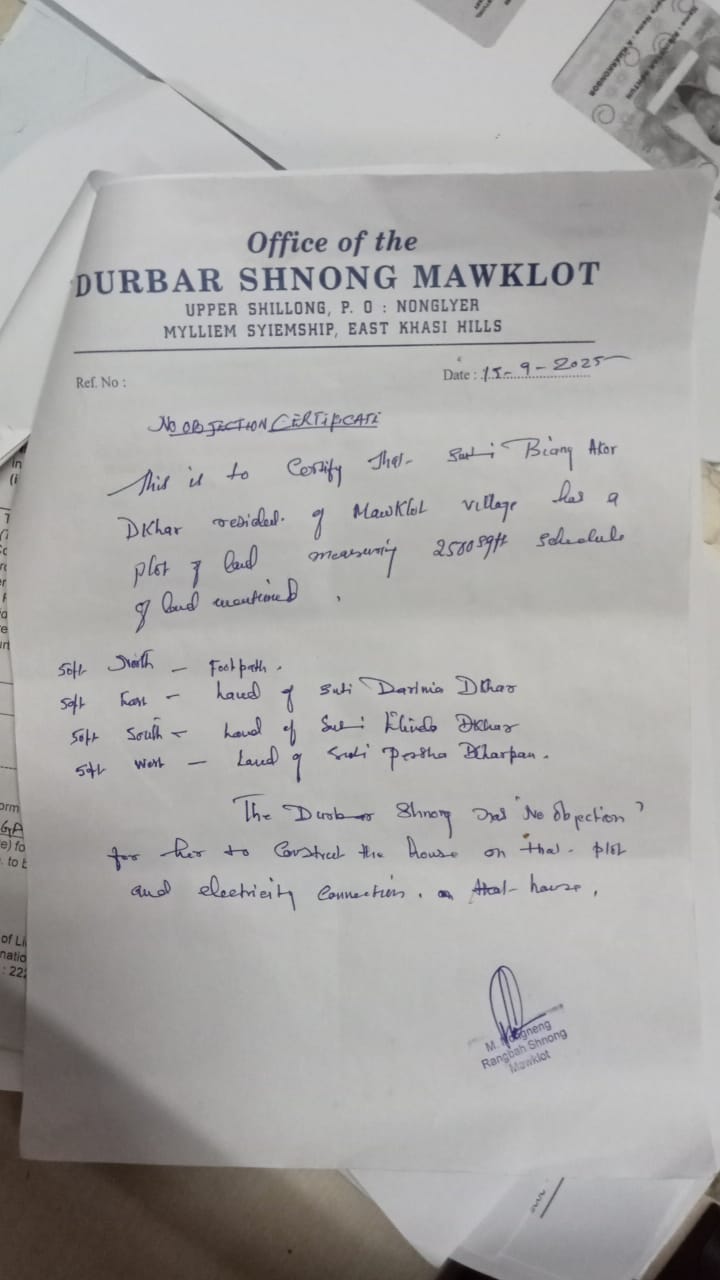 Office of the
DURBAR SHNONG MAWKLOT
UPPER SHILLONG, P. O : NONGLYER
MYLLIEM SYIEMSHIP, EAST KHASI HILLS
Ref. No :
Date : 15-9-2025
NO OBJECTION CERTIFICATE
This is to Certify That Biang Akor
DKhar resident of Mawklot village has a
plot of land measuring 2500 sqft schedule
of land mentioned.
50ft North - Footpath.
50ft East - Land of Darinia Dkhar
50ft South - Land of Dkhar
50ft West - Land of Dkharpan.
The Durbar Shnong has "No objection"
for her to construct the house on that plot
and electricity connection. on that house.
M.
Rangbah Shnong
Mawklot